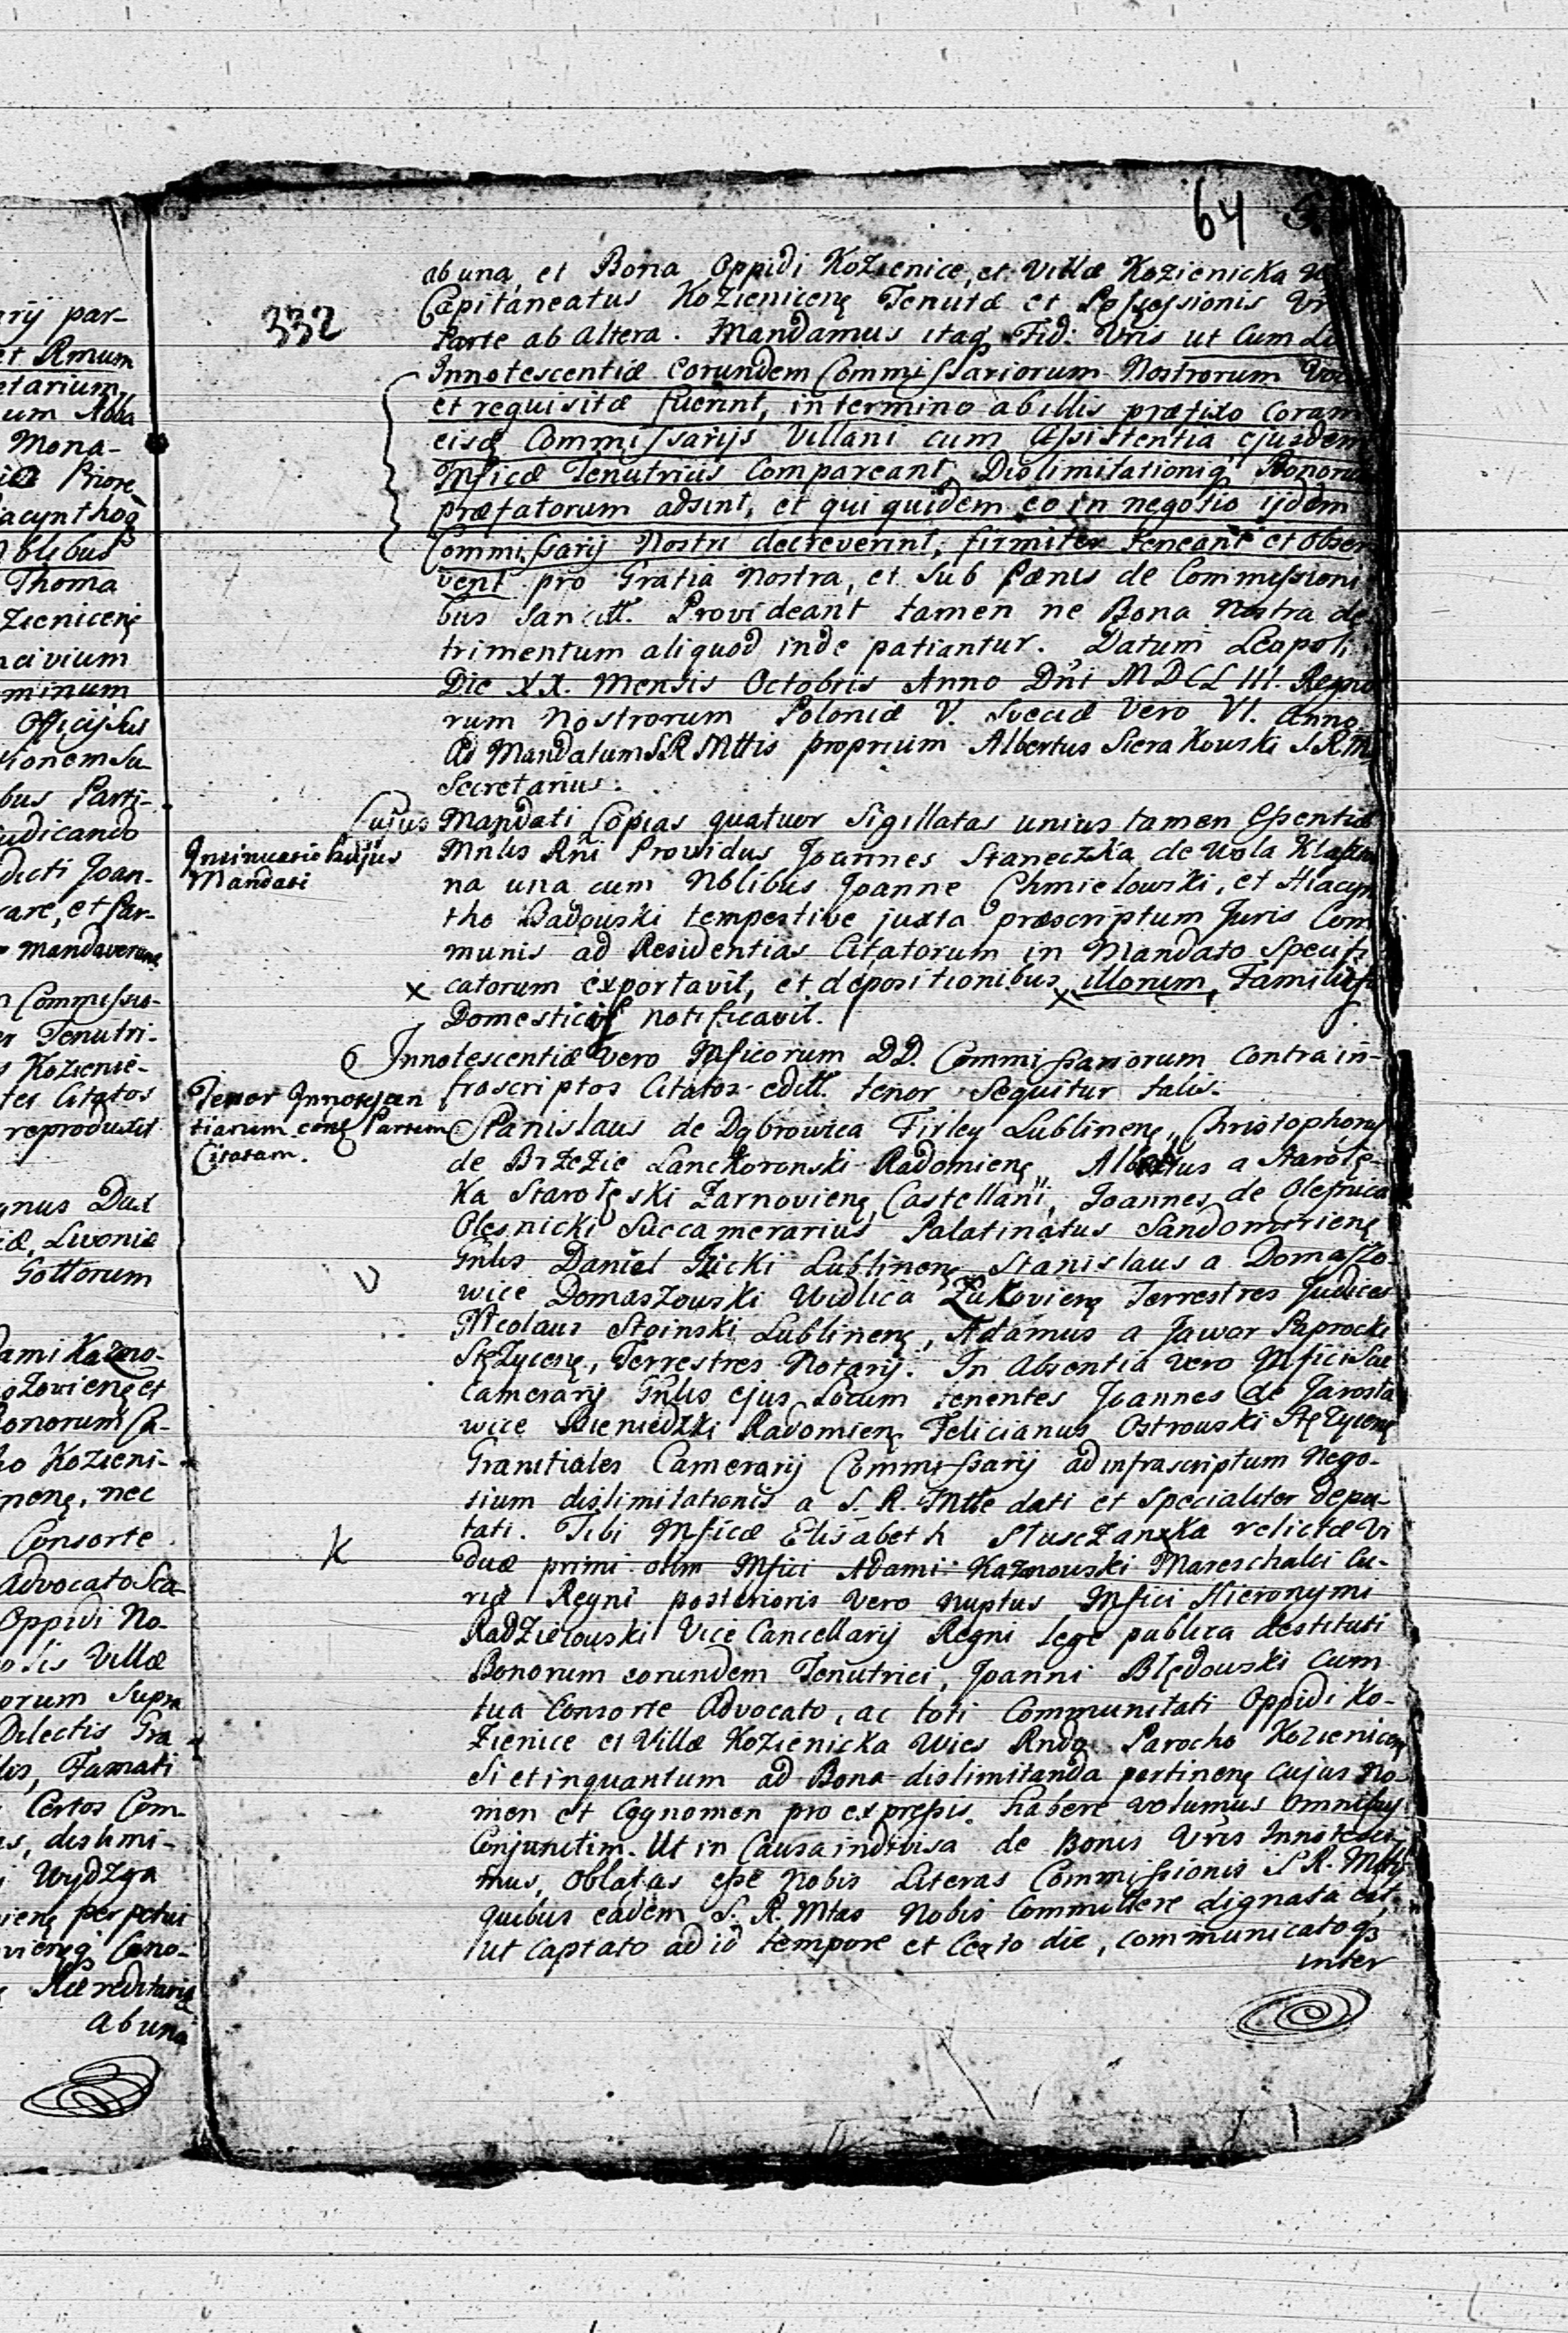 rij par-
et Rmum
etarium
um Abba
Mona-
Priore
acynthoq
blibus
Thoma
zieniceñ
civium
minum
Officij sui
tionem su-
bus Parti-
udicando
dicti Joan-
are, et Par-
mandaverunt
Commissio-
Tenutri-
Kozienie-
ter Citatos
reproduxit
gnus Dux
Livoniæ
Gottorum
ami Kazno-
et
Bonorum Ca-
Kozieni-
nec
Consorte
Advocato Sca-
Oppidi No-
Villæ
orum supra
Dilectis Gra
Famati
Certos Com-
dislimi-
Wydzga
perpetui
Cano-
Hæreditarijs
ab una
64
332
ab una, et Bona Oppidi Kozienice, et Villæ Kozienicka
Capitaneatus Kozieniceñ Tenutæ et Possessionis Vr
Parte ab altera. Mandamus itaq Fid: Vris ut cum
Innotescentiæ eorundem Commissariorum Nostrorum
et requisitæ fuerint, in termino ab illis præfixo coram
eisdẽ Commissarijs Villani cum assistentia ejusdem
Mficæ Tenutricis compareant, Dislimitationiq Bonorum
præfatorum adsint, et qui quidem eo in negotio ijdem
Commissarij Nostri decreverint, firmiter teneant et obser
vent pro Gratia Nostra, et sub Pœnis de Commissioni
bus sancitt. Provideant tamen ne Bona Nostra de
trimentum aliquod inde patiantur. Datum Leopoli
Die XX. Mensis Octobris Anno Dñi MDCLIII. Regno
rum Nostrorum Poloniæ V. Sveciæ Vero VI. Anno
Ad Mandatum S R Mttis proprium Albertus Sierakowski S.R.M
Secretarius.
Insinuatio hujus
Mandati
Cujus Mandati Copias quatuor Sigillatas unius tamen Essentiæ
Mnlis Rñi Providus Joannes Staneczka de Wola Klaszto
na una cum Nblibus Joanne Chmielowski, et Hiacyn
tho Dadowski tempestive juxta præscriptum Juris Com
munis ad Residentias Citatorum in Mandato specifi
x catorum exportavit, et depositionibus x illorum, Familiæ
Domesticis notificavit.
6 Innotescentiæ Vero Mficorum DD. Commissariorum contra in-
frascriptos Citatos editt. tenor sequitur talis.
Tenor Innotescen
tiarum Partem
Citatam.
Stanislaus de Dąbrowica Firley Lublineñ, Christophorus
de Brzezie Lanckoronski Radomieñ, Albertus a Starołę-
ka Starołęski Zarnovieñ, Castellani, Joannes de Olesnica
Olesnicki Succamerarius Palatinatus Sandomirieñ
Gñlis Daniel Lublineñ Stanislaus a Domaszo-
V
wice Domaszowski Widlica Łukovieñ Terrestres Judices
Nicolaus Stoinski Lublineñ, Adamus a Jawor Paprocki
Stężyceñ, Terrestres Notarij. In Absentia vero Mfici Suc
camerarij Gñlis ejus Locum tenentes Joannes de Jarosla
wice Bieniedzki Radomieñ Felicianus Ostrowski Stężyceñ
Granitiales Camerarij Commissarij ad infrascriptum Nego-
tium dislimitationis a S. R. Mtte dati et specialiter depu-
tati. Tibi Mficæ Elisabeth Słuszanka relictæ Vi
K
duæ primi olim Mfici Adami Kazanowski Mareschalci Cu-
riæ Regni posterioris vero nuptus Mfici Hieronymi
Radzieiowski Vice Cancellarij Regni lege publica destituti
Bonorum eorundem Tenutrici, Joanni Błędowski cum
tua Consorte Advocato, ac toti Communitati Oppidi Ko-
zienice et Villæ Kozienicka Wies Rndo Parocho Kozieniceñ
Si et inquantum ad Bona dislimitanda pertineñ cujus No-
men et Cognomen pro expressis habere volumus Omnibus
Conjunctim. Ut in Causa indivisa de Bonis Vris Innotesci-
mus, Oblatas esse Nobis Literas Commissionis S R. Mttis
quibus eadem S. R. Mtas Nobis Committere dignata est,
ut captato ad id tempore et certo die, communicatoq
inter